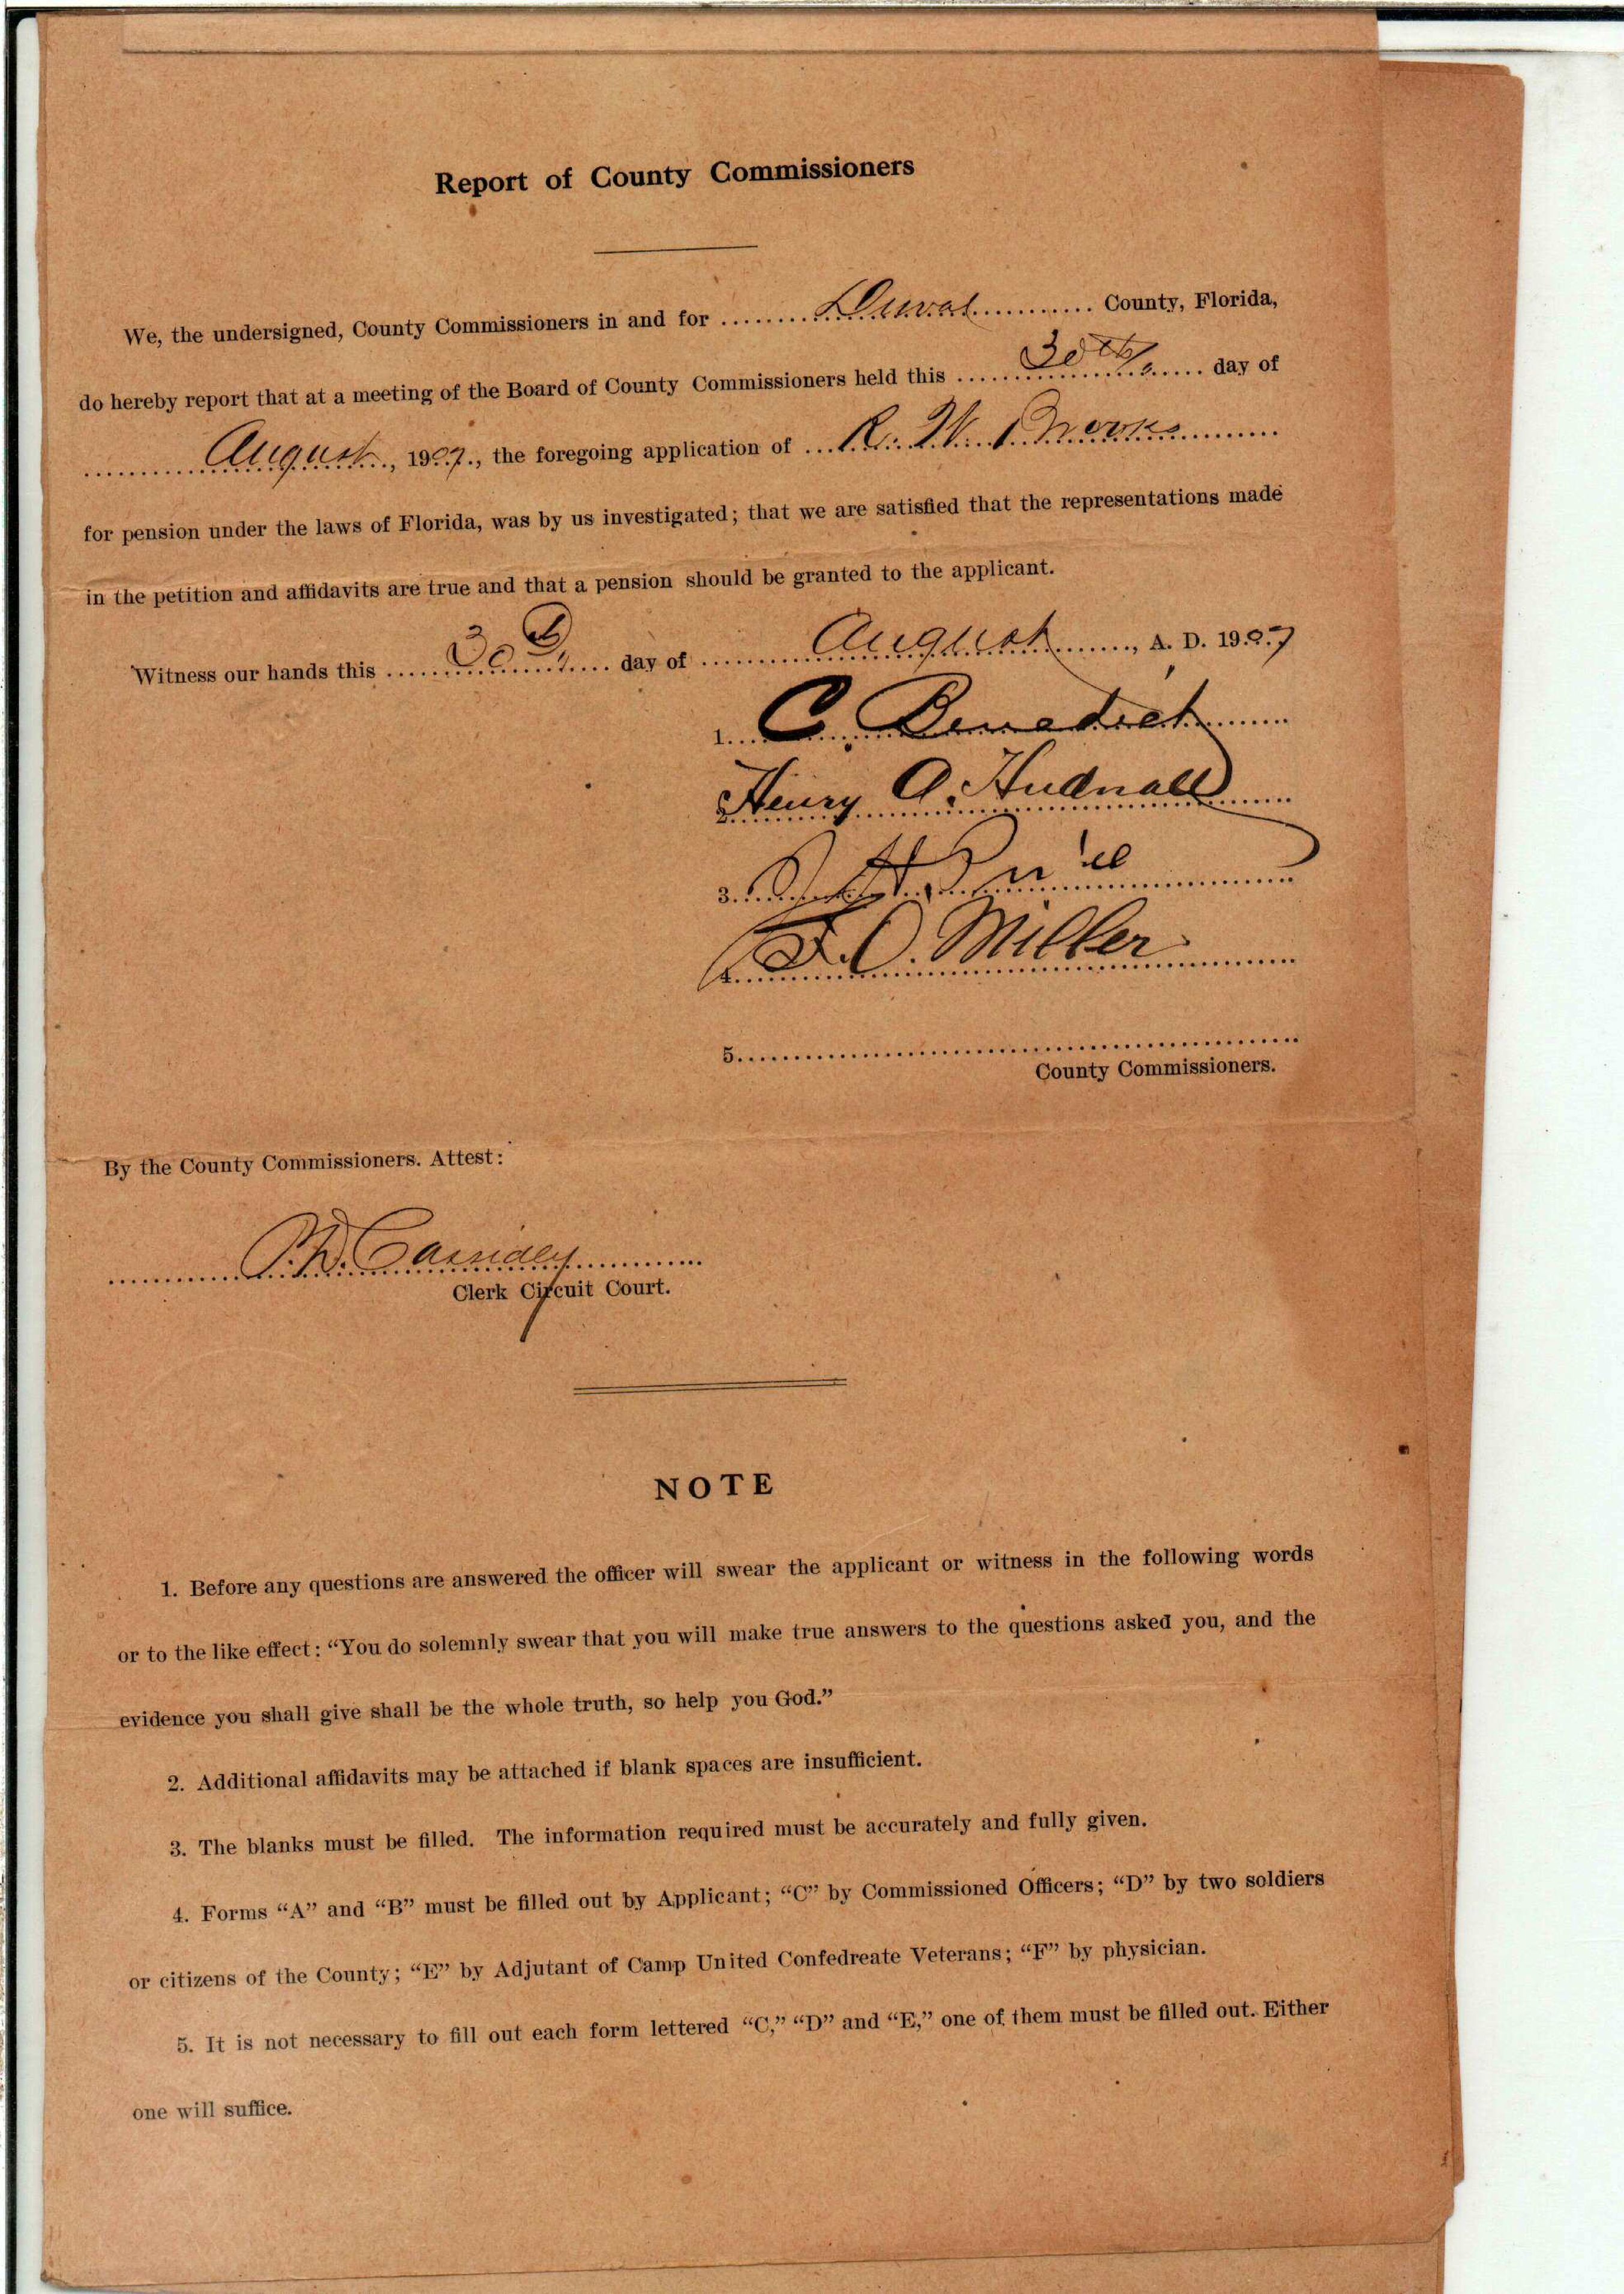 Report of County Commissioners
We, the undersigned, County Commissioners in and for ........ Duval ........ County, Florida,
do hereby report that at a meeting of the Board of County Commissioners held this ..... 30th ..... day of
........ August ...., 1907., the foregoing application of ... R. W. Brooks ........
for pension under the laws of Florida, was by us investigated; that we are satisfied that the representations made
in the petition and affidavits are true and that a pension should be granted to the applicant.
Witness our hands this ..... 30 ..... day of ........ August ......, A. D. 1907
1. C. Benedict
2. Henry A. Hudnall
3.
4. F. O. Miller
5.
County Commissioners.
By the County Commissioners. Attest:
P. D. Cassidey
Clerk Circuit Court.
NOTE
1. Before any questions are answered the officer will swear the applicant or witness in the following words
or to the like effect: “You do solemnly swear that you will make true answers to the questions asked you, and the
evidence you shall give shall be the whole truth, so help you God.”
2. Additional affidavits may be attached if blank spaces are insufficient.
3. The blanks must be filled. The information required must be accurately and fully given.
4. Forms “A” and “B” must be filled out by Applicant; “C” by Commissioned Officers; “D” by two soldiers
or citizens of the County; “E” by Adjutant of Camp United Confedreate Veterans; “F” by physician.
5. It is not necessary to fill out each form lettered “C,” “D” and “E,” one of them must be filled out. Either
one will suffice.